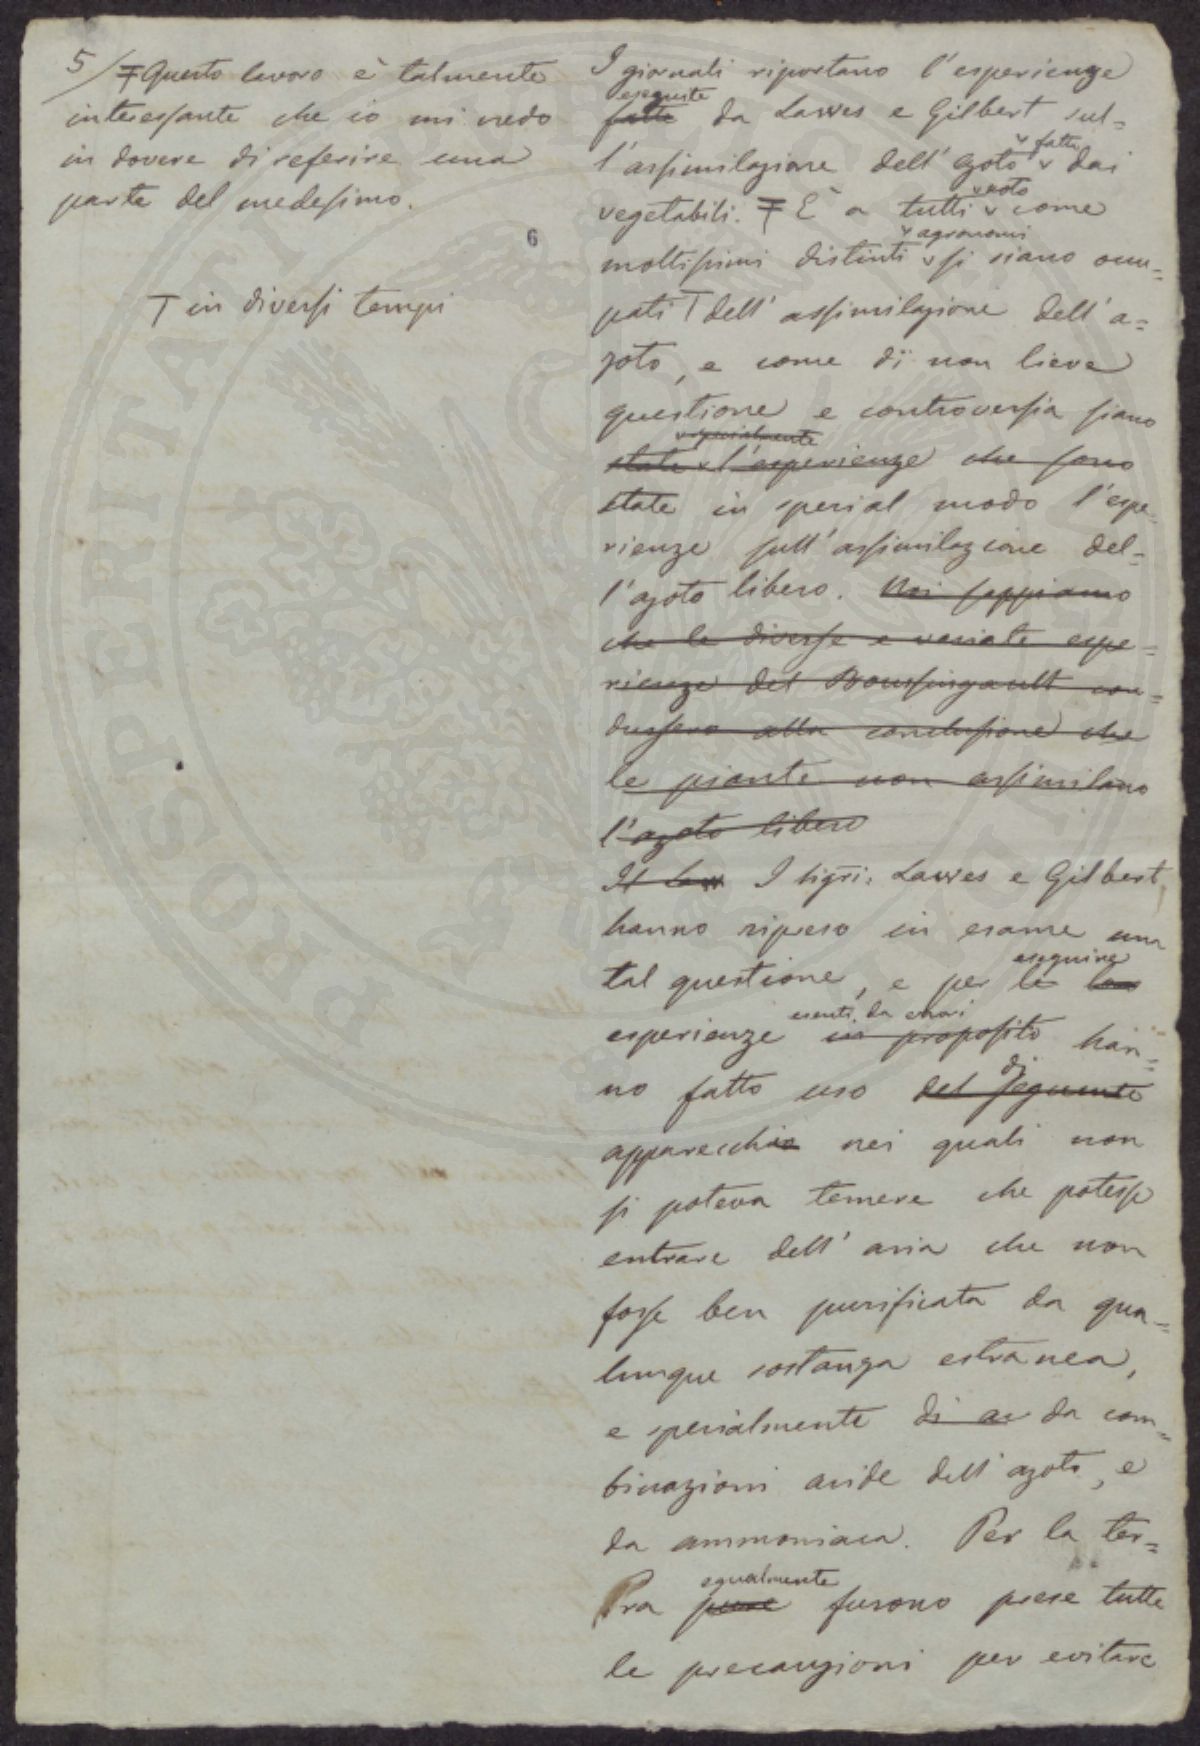 5/ Ŧ Questo lavoro è talmente
interessante che io mi credo
in dovere di referire una
parte del medesimo.
6
T in diversi tempi
I giornali riportano l'esperienze
eseguite
fatte da Lawes e Gilbert sul=
l'assimilazione dell'azoto dai
vegetabili. Ŧ È a tutti noto come
agronomi
moltissimi distinti si siano occu=
pati T dell'assimilazione dell'a=
zoto, e come di non lieve
questione e controversia siano
specialmente
state l'esperienze che sono
state in special modo l'espe
rienze sull'assimilazione del=
l'azoto libero. Noi sappiamo
che le diverse e variate espe=
rienze del Boussingault con=
dussero alla conclusione che
le piante non assimilano
l'azoto libero
Il Law I Sigri. Lawes e Gilbert
hanno ripreso in esame una
tal questione, e per eseguire le
esenti da errori
esperienze in proposito han=
di
no fatto uso del seguente
apparecchio nei quali non
si poteva temere che potesse
entrare dell'aria che non
fosse ben purificata da qua=
lunque sostanza estranea,
e specialmente di ac da com=
binazioni acide dell'azoto, e
da ammoniaca. Per la ter=
egualmente
ra pure furono prese tutte
le precauzioni per evitare
PROSPERITATI PUBLICAE